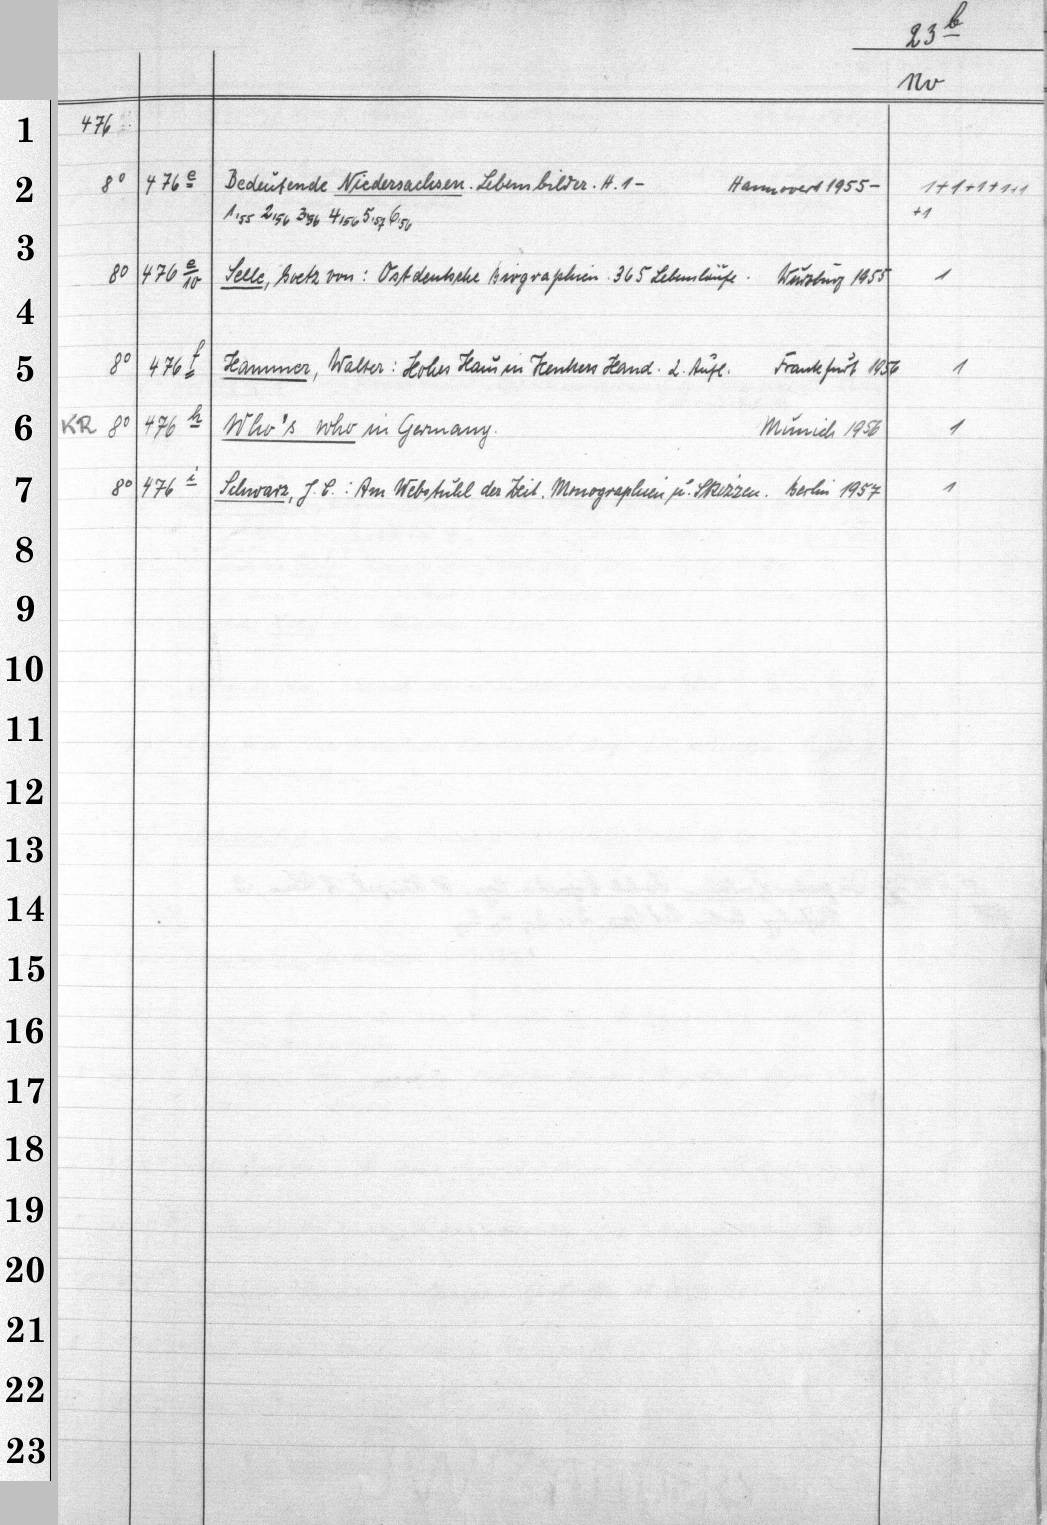 23 b
No
1 476
2 8° 476 e Bedeutende Niedersachsen. Lebensbilder. H. 1- Hannover 1955- 1+1+1+1+1
1,55 2,56 3,56 4,56 5,57 6,56 +1
3 8° 476 e/10 Selle, Goetz von: Ostdeutsche Biographien. 365 Lebensläufe. Würzburg 1955 1
4
5 8° 476 f Hammer, Walter: Hohes Haus in Henkers Hand. 2. Aufl. Frankfurt 1956 1
6 KR 8° 476 h Who's who in Germany. Munich 1956 1
7 8° 476 i Schwarz, J. C.: Am Webstuhl der Zeit. Monographien u. Skizzen. Berlin 1957 1
8
9
10
11
12
13
14
15
16
17
18
19
20
21
22
23